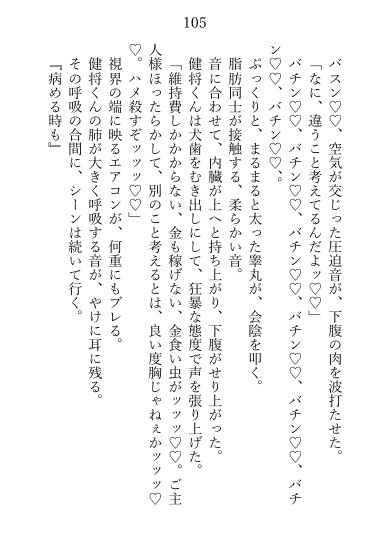 105
バスン♡♡、空気が交じった圧迫音が、下腹の肉を波打たせた。
「なに、違うこと考えてるんだよッ♡♡」
バチン♡♡、バチン♡♡、バチン♡♡、バチン♡♡、バチ
ン♡♡、バチン♡♡、。
ぷっくりと、まるまると太った睾丸が、会陰を叩く。
脂肪同士が接触する、柔らかい音。
音に合わせて、内臓が上へと持ち上がり、下腹がせり上がった。
健将くんは犬歯をむき出しにして、狂暴な態度で声を張り上げた。
「維持費しかかからない、金も稼げない、金食い虫がッッッ♡♡。ご主
人様ほったらかして、別のこと考えるとは、良い度胸じゃねぇかッッッ♡
♡。ハメ殺すぞッッッ♡♡」
視界の端に映るエアコンが、何重にもブレる。
健将くんの肺が大きく呼吸する音が、やけに耳に残る。
その呼吸の合間に、シーンは続いて行く。
『病める時も』